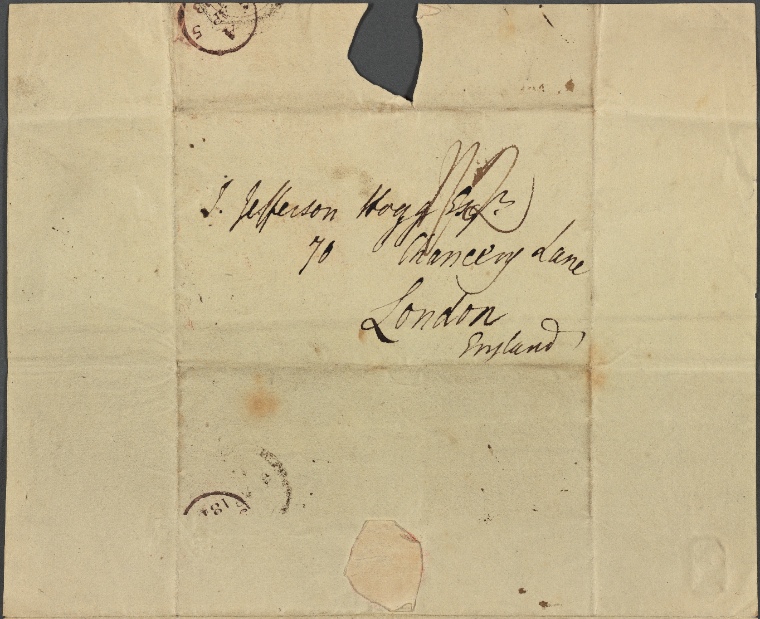 A
5
J. Jefferson Hogg Esqr.
70 Chancery Lane
London
England
181